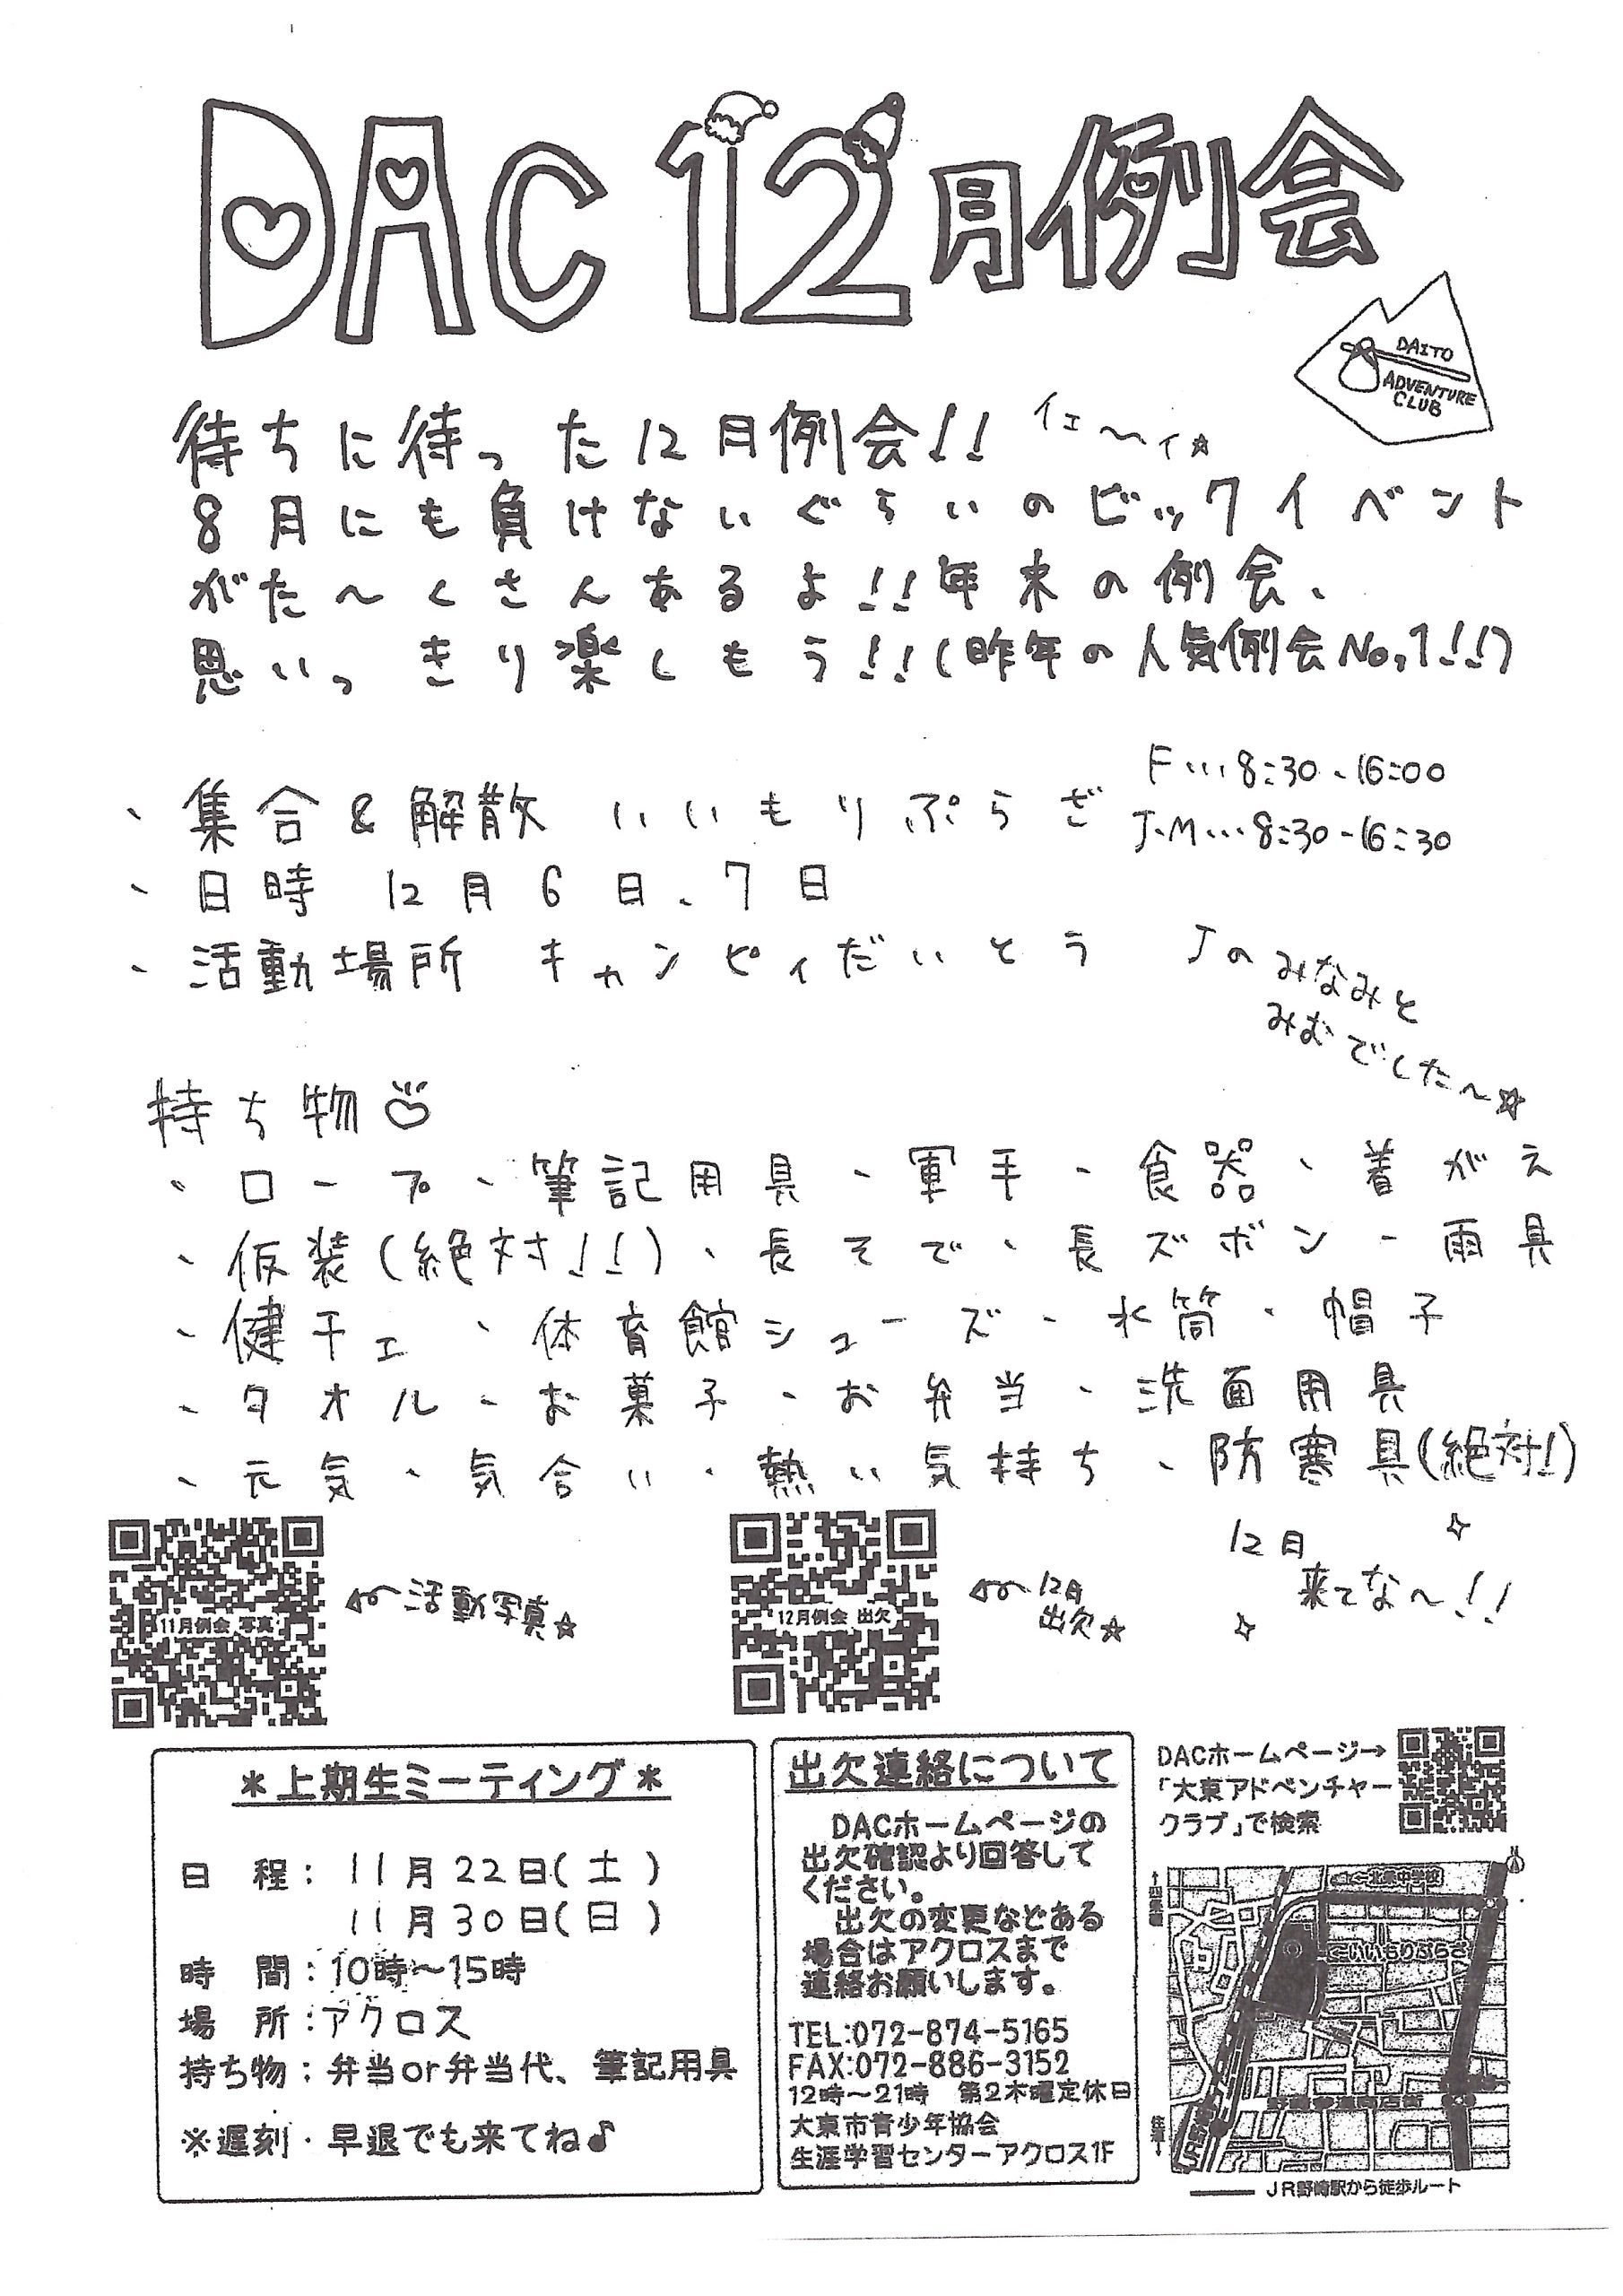 DAC 12月例会
DAITO
ADVENTURE
CLUB
待ちに待った12月例会!! イェ〜ィ☆
8月にも負けないぐらいのビックイベント
がた〜くさんあるよ!!年末の例会、
思いっきり楽しもう!!(昨年の人気例会No,1!!)
・集合&解散 いいもりぷらざ
F…8:30、16:00
J、M…8:30-16:30
・日時 12月6日、7日
・活動場所 キャンピィだいとう
Jのみなみと
みむでした〜☆
持ち物
・ロープ・筆記用具・軍手・食器・着がえ
・仮装(絶対!!)・長そで・長ズボン・雨具
・健チェ・体育館シューズ・水筒・帽子
・タオル・お菓子・お弁当・洗面用具
・元気・気合い・熱い気持ち・防寒具(絶対!)
11月例会 写真
活動写真☆
12月例会 出欠
12月
出欠☆
12月
来てな〜!!
*上期生ミーティング*
日 程: 11月22日(土)
11月30日(日)
時 間:10時〜15時
場 所:アクロス
持ち物:弁当or弁当代、筆記用具
※遅刻・早退でも来てね♪
出欠連絡について
DACホームページの
出欠確認より回答して
ください。
出欠の変更などある
場合はアクロスまで
連絡お願いします。
TEL:072-874-5165
FAX:072-886-3152
12時〜21時 第2木曜定休日
大東市青少年協会
生涯学習センターアクロス1F
DACホームページ→
「大東アドベンチャー
クラブ」で検索
北条中学校
←四条畷
いいもりぷらざ
野崎参道商店街
住道→
JR野崎駅から徒歩ルート